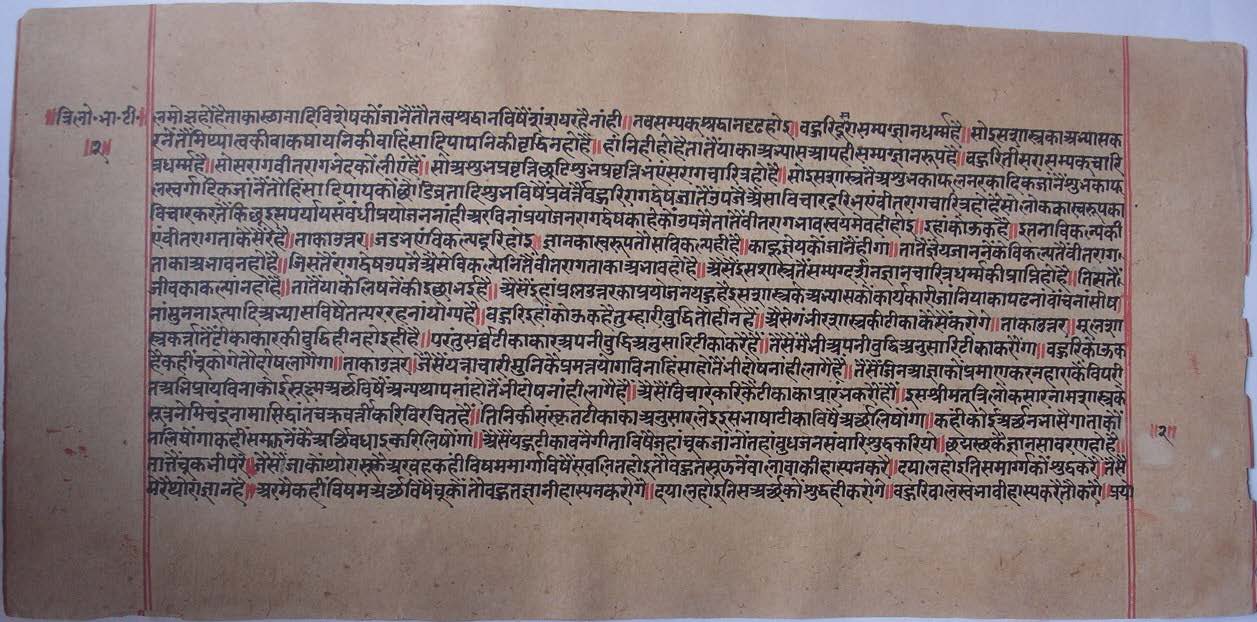 त्रिलो॰भा॰टी॰
॥२॥
लमोक्षहोहैताकास्थानादिविशेषकोंजानैंतौतत्वश्रद्धानविषैंसंशयरहैनांही॥नवसम्यकश्रद्धानदृढहोइ॥बहुरिदूसरासम्यग्ज्ञानधर्म्महै॥सोऽसशास्त्रकाअभ्यासक
रनेंतैंमिथ्यात्वकीवाकषायनिकीवाहिंसादिपापनिकीवृद्धिनहोहै॥हांनिहीहोहैतातैंयाकाअभ्यासआपहीसम्यग्ज्ञानरूपहै॥बहुरितीसरासम्यकचारि
त्रधर्म्महै॥सोसरागवीतरागभेदकोंलीएंहै॥सोअशुभप्रवृत्तिछूटिशुभप्रवृत्तिभएंसरागचारित्रहोहै॥सोइसशास्त्रतैंअशुभकाफलनरकादिकजांनैंशुभकाफ
लस्वर्गादिकजांनैंतोहिंसादिपापकोंछोडिव्रतादिशुभविषैंप्रवर्त्तैबहुरिरागद्वेषजातैंउपजैऐसाविचारदूरिभएंवीतरागचारित्रहोहैसोलोककास्वरूपका
विचारकरतैंकिछुइसपर्यायसंबंधीप्रयोजननांहीअरविनांप्रयोजनरागद्वेषकाहेकोंउपजैतातैंवीतरागभावस्वयमेवहीहोइ॥इहांकोऊकहै॥इतनाविकल्पकी
एंवीतरागताकैसेंरहै॥ताकाउत्तर॥जडभएंविकल्पदूरिहोइ॥ज्ञानकास्वरूपतौसविकल्पहीहै॥काहूज्ञेयकोंजांनैंहीगा॥तातैंज्ञेयजाननेंकेविकल्पतैंवीतराग
ताकाअभावनहोहै॥जिसतैंरागद्वेषउपजैऐसेविकल्पनितैंवीतरागताकाअभावहोहै॥ऐसैंइसशास्त्रतैंसम्यग्दर्शनज्ञानचारित्रधर्म्मकीप्राप्तिहोहै॥तिसतैं
जीवकाकल्यानहोहै॥तातैंयाकेलिषनेकीइछाभईहै॥ऐसैंइहांप्रश्नउत्तरकाप्रयोजनयहुहैइसशास्त्रकेअभ्यासकोंकार्यकारीजांनियाकापढनावांचनांसीष
नांसुननाइत्यादिअभ्यासविषैंतत्पररहनांयोग्यहै॥बहुरिइहांकोऊकहैतुम्हारीबुद्धितोहीनहै॥ऐसेगंभीरशास्त्रकीटीकाकैसेंकरोगे॥ताकाउत्तर॥मूलशा
स्त्रकर्त्तातैंटीकाकारकीबुद्धिहीनहोइहीहै॥परंतुसर्व्वटीकाकारअपनीबुद्धिअनुसारिटीकाकरैंहैं॥तैसेंमैंभीअपनीबुद्धिअनुसारिटीकाकरौंगा॥बहुरिकोऊक
हैकहींचूकोगेतोदोषलागैगा॥ताकाउत्तर॥जैसेंयत्नाचारीमुनिकैप्रमत्तयोगविनांहिंसाहोतैंभीदोषनांहीलागैहै॥तैसेंजिनआज्ञाकोंप्रमाणकरनहाराकेविपरी
तअभिप्रायविनाकोईसूक्ष्मअर्थविषैंअन्यथापनांहोतैंभीदोषनांहीलागैहै॥ऐसैंविचारकरिकैंटीकाकाप्रारंभकरौंहौं॥इसश्रीमतत्रिलोकसारनामशास्त्रके
सूत्रनेमिचंद्रनामासिद्धांतचक्रवर्त्तीकरिविरचितहै॥तिनिकीसंस्कृतटीकाकाअनुसारलेइइसभाषाटीकाविषैंअर्थलिषोंगा॥कहींकोईअर्थनभासैगाताकों
नलिषोंगाकहींसमजनेंकेअर्थिबधाइकरिलिषोंगा॥ऐसेंयहुटीकाबनेगीताविषैंजहांचूकजांनोंतहांबुधजनसंवारिशुद्धकरियो॥छद्मस्थकेज्ञानसावरणहोहै॥
तातैंचूकभीपरै॥जैसेंजाकोंथोरासूझैअरवहकहींविषममार्गविषैंस्खलितहोइतौबहुतसूझनेंवालावाकीहास्यनकरै॥दयालहोइतिसमार्गकोंशुद्धकरै॥तैसें
मेरैथोराज्ञानहै॥अरमैंकहींविषमअर्थविषैंचूकौंतौबहुतज्ञानीहास्यनकरोगे॥दयालहोइतिसअर्थकोंशुद्धहीकरोगे॥बहुरिबालस्वभावीहास्यकरैतौकरौ॥प्रया
॥२॥